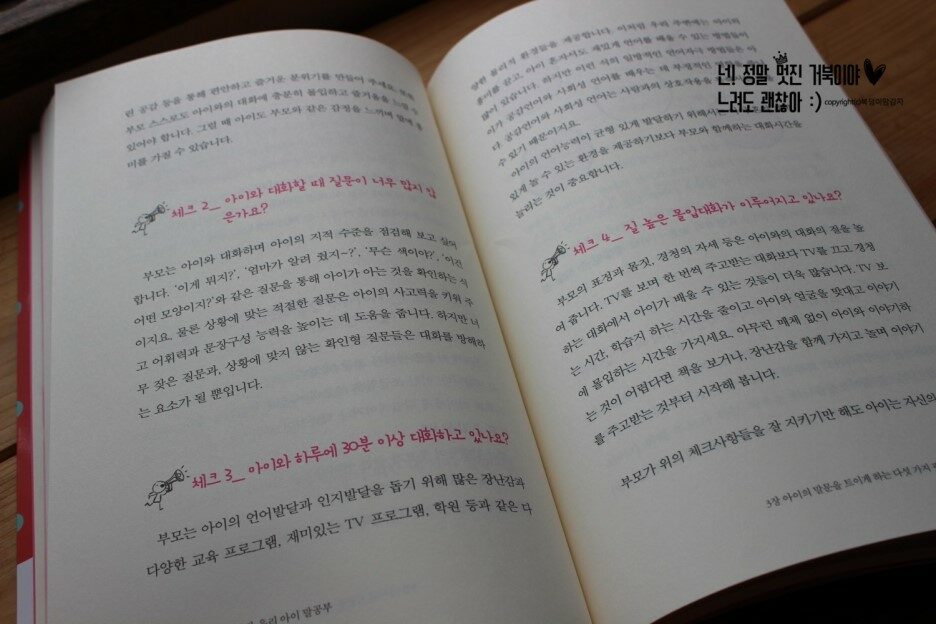 린 공감 등을 통해 편안하고 즐거운 분위기를 만들어 주세요. 또한
부모 스스로도 아이와의 대화에 충분히 몰입하고 즐거움을 느낄 수
있어야 합니다. 그럴 때 아이도 부모와 같은 감정을 느끼며 함께 흥
미를 가질 수 있습니다.
체크 2_ 아이와 대화할 때 질문이 너무 많지 않
은가요?
부모는 아이와 대화하며 아이의 지적 수준을 점검해 보고 싶어
합니다. '이게 뭐지?', '엄마가 알려 줬지~?', '무슨 색이야?', '이건
어떤 모양이지?'와 같은 질문을 통해 아이가 아는 것을 확인하는 식
이지요. 물론 상황에 맞는 적절한 질문은 아이의 사고력을 키워 주
고 어휘력과 문장구성 능력을 높이는 데 도움을 줍니다. 하지만 너
무 잦은 질문과, 상황에 맞지 않는 확인형 질문들은 대화를 방해하
는 요소가 될 뿐입니다.
체크 3_ 아이와 하루에 30분 이상 대화하고 있나요?
부모는 아이의 언어발달과 인지발달을 돕기 위해 많은 장난감과
다양한 교육 프로그램, 재미있는 TV 프로그램, 학원 등과 같은 다
우리 아이 말공부
양한 물리적 환경들을 제공합니다. 이처럼 우리 주변에는 아이의
흥미를 끌고, 아이 혼자서도 재밌게 언어를 배울 수 있는 방법들이
많이 있습니다. 하지만 이런 식의 일방적인 언어자극 방법들은 아
이가 공감언어와 사회성 언어를 배우는 데 부정적인
다. 공감언어와 사회성 언어는 사람과의 상호작용을
수 있기 때문이지요.
아이의 언어능력이 균형 있게 발달하기 위해서는
있게 놀 수 있는 환경을 제공하기보다 부모와 함께하는 대화시간을
늘리는 것이 중요합니다.
체크 4_ 질 높은 몰입대화가 이루어지고 있나요?
부모의 표정과 몸짓, 경청의 자세 등은 아이와의 대화의 질을 높
여 줍니다. TV를 보며 한 번씩 주고받는 대화보다 TV를 끄고 경청
하는 대화에서 아이가 배울 수 있는 것들이 더욱 많습니다. TV 보
는 시간, 학습지 하는 시간을 줄이고 아이와 얼굴을 맞대고 이야기
에 몰입하는 시간을 가지세요. 아무런 매체 없이 아이와 이야기하
는 것이 어렵다면 책을 보거나, 장난감을 함께 가지고 놀며 이야기
를 주고받는 것부터 시작해 봅니다.
부모가 위의 체크사항들을 잘 지키기만 해도 아이는 자신의
3장 아이의 말문을 트이게 하는 다섯 가지
넌 정말 멋진 거북이야
느려도 괜찮아 :)